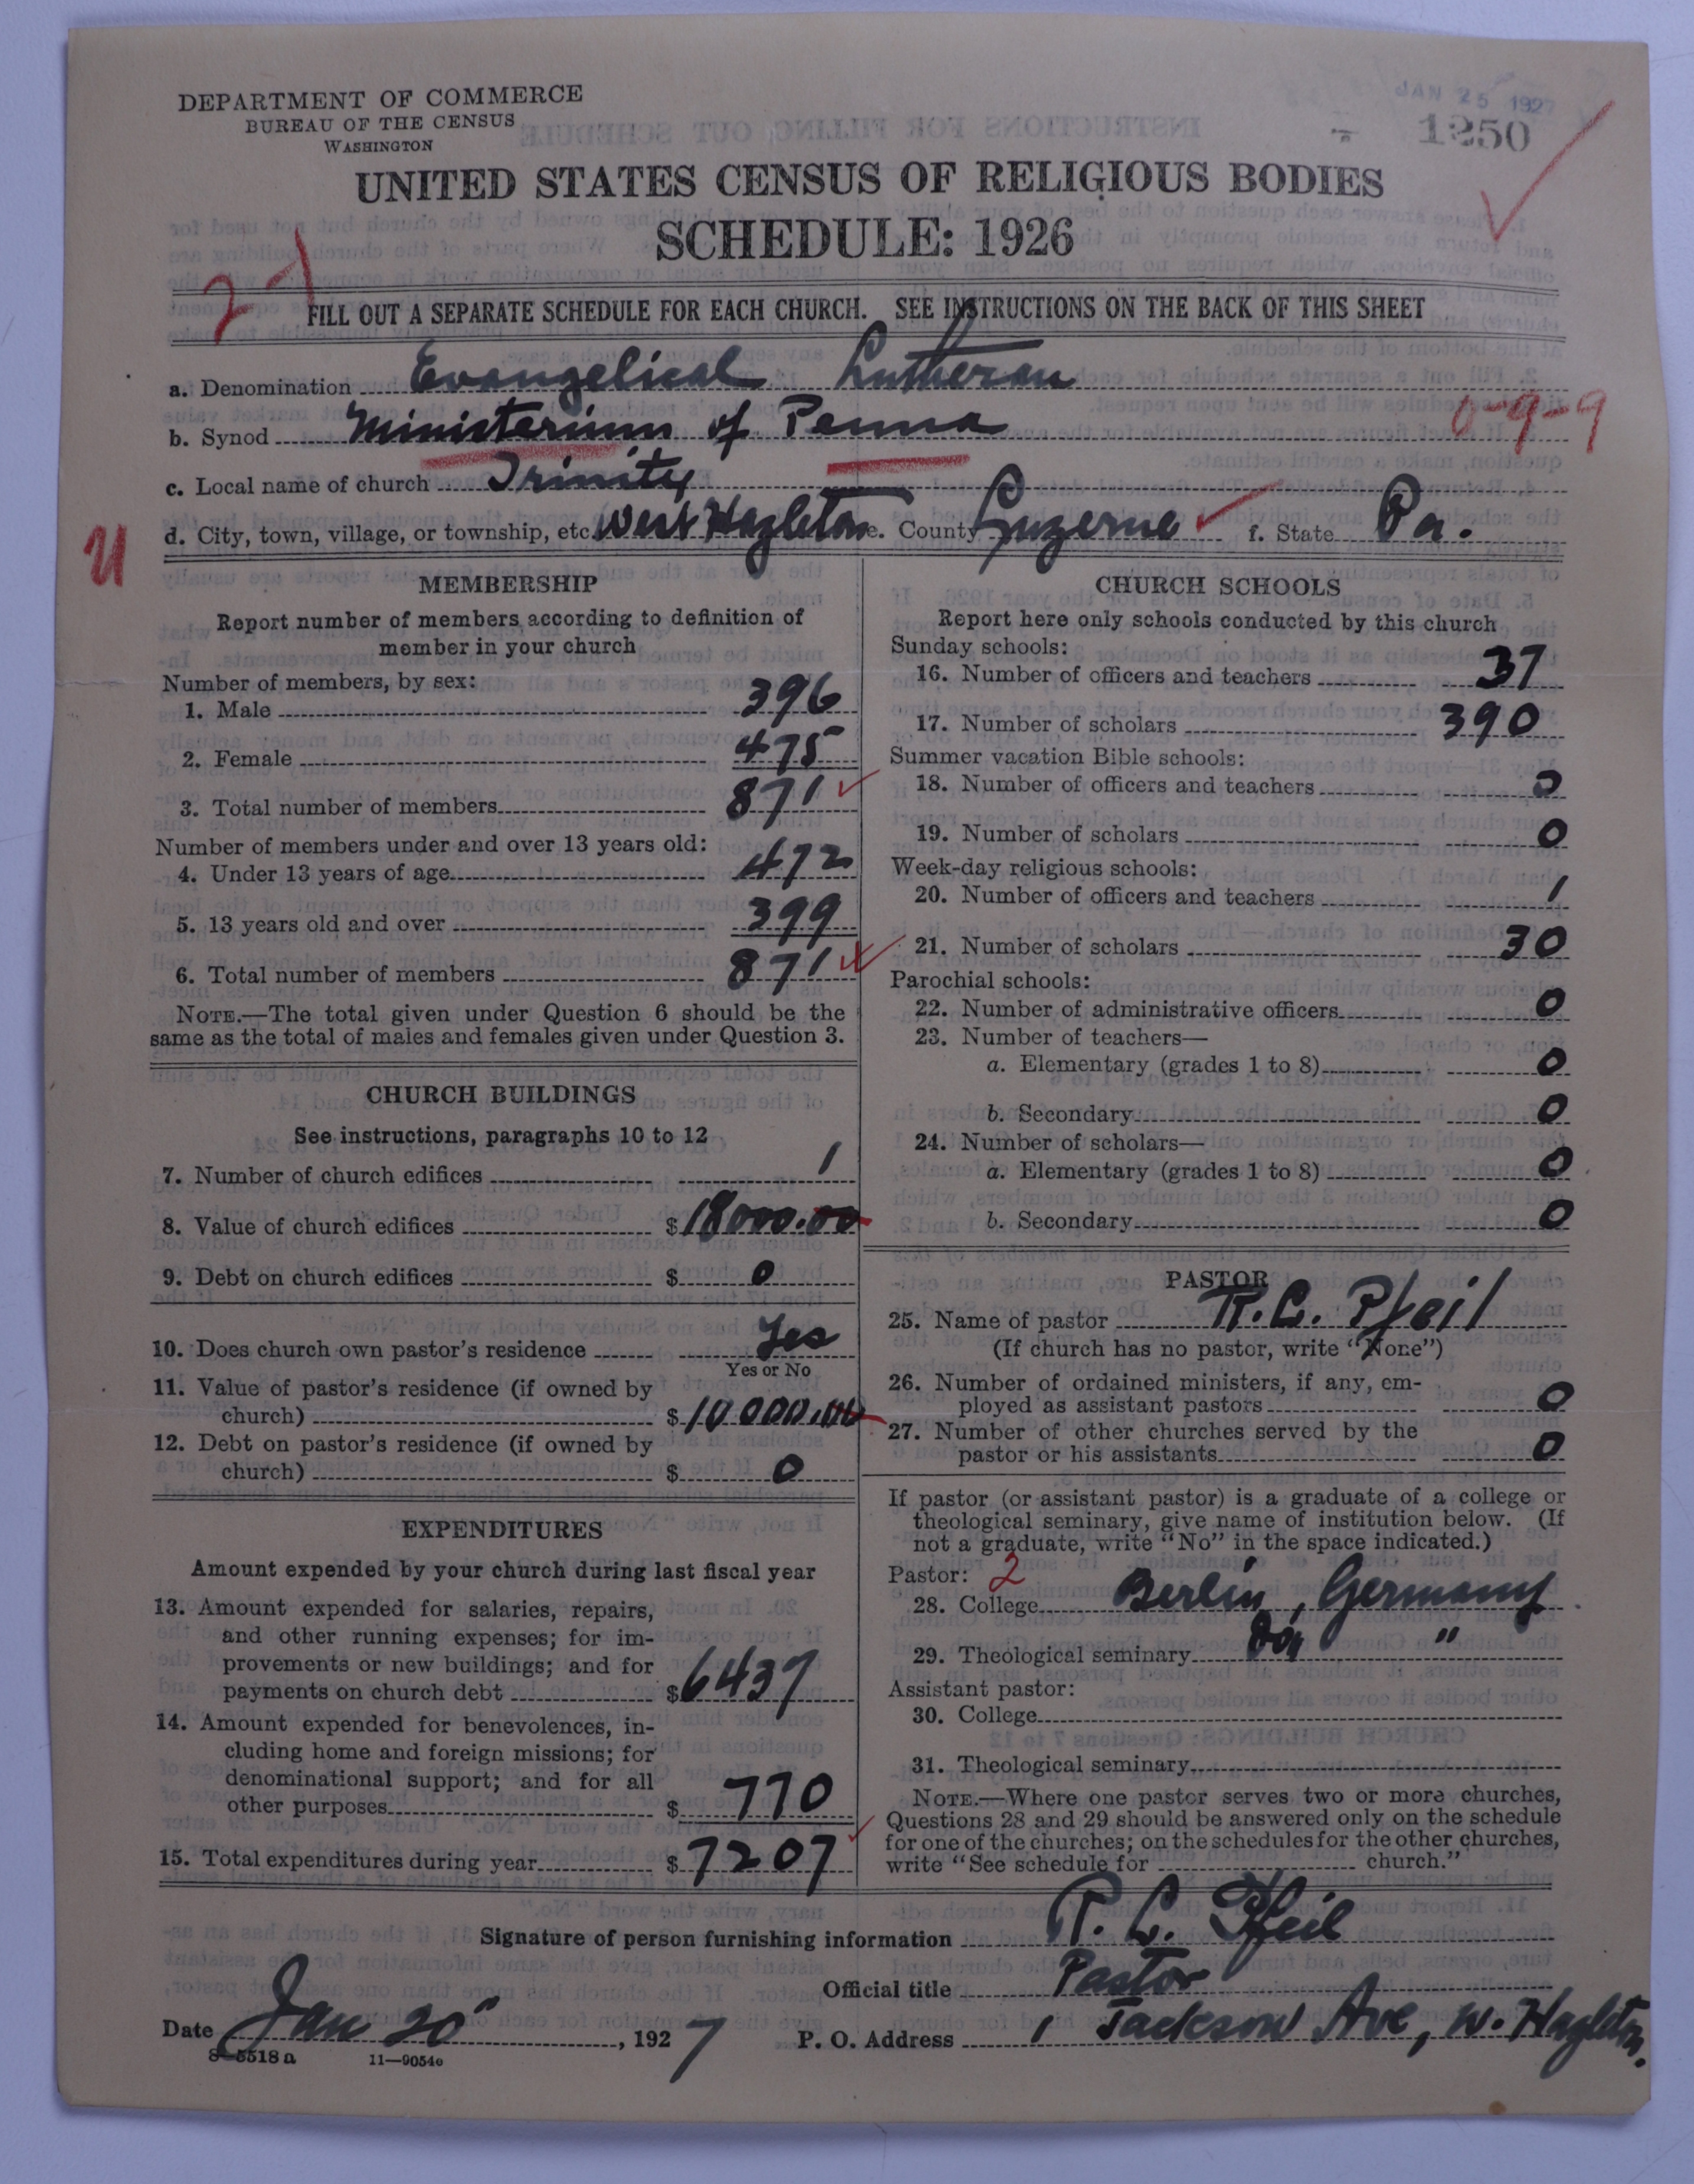 DEPARTMENT OF COMMERCE
BUREAU OF THE CENSUS
WASHINGTON
JAN 25 1927
1250
UNITED STATES CENSUS OF RELIGIOUS BODIES
SCHEDULE: 1926
FILL OUT A SEPARATE SCHEDULE FOR EACH CHURCH. SEE INSTRUCTIONS ON THE BACK OF THIS SHEET
a. Denomination Evangelical Lutheran
b. Synod Ministerium of Penna 0-9-9
c. Local name of church Trinity
d. City, town, village, or township, etc. West Hazleton e. County Luzerne f. State Pa.
MEMBERSHIP
Report number of members according to definition of
member in your church
Number of members, by sex:
1. Male 396
2. Female 475
3. Total number of members 871
Number of members under and over 13 years old:
4. Under 13 years of age 472
5. 13 years old and over 399
6. Total number of members 871
NOTE.—The total given under Question 6 should be the
same as the total of males and females given under Question 3.
CHURCH BUILDINGS
See instructions, paragraphs 10 to 12
7. Number of church edifices 1
8. Value of church edifices $18000.00
9. Debt on church edifices $ 0
10. Does church own pastor's residence Yes
Yes or No
11. Value of pastor's residence (if owned by
church) $10000.00
12. Debt on pastor's residence (if owned by
church) $ 0
EXPENDITURES
Amount expended by your church during last fiscal year
13. Amount expended for salaries, repairs,
and other running expenses; for im-
provements or new buildings; and for
payments on church debt $6437
14. Amount expended for benevolences, in-
cluding home and foreign missions; for
denominational support; and for all
other purposes $ 770
15. Total expenditures during year $7207
CHURCH SCHOOLS
Report here only schools conducted by this church
Sunday schools:
16. Number of officers and teachers 37
17. Number of scholars 390
Summer vacation Bible schools:
18. Number of officers and teachers 0
19. Number of scholars 0
Week-day religious schools:
20. Number of officers and teachers 1
21. Number of scholars 30
Parochial schools:
22. Number of administrative officers 0
23. Number of teachers—
a. Elementary (grades 1 to 8) 0
b. Secondary 0
24. Number of scholars—
a. Elementary (grades 1 to 8) 0
b. Secondary 0
PASTOR
25. Name of pastor R. C. Pfeil
(If church has no pastor, write "None")
26. Number of ordained ministers, if any, em-
ployed as assistant pastors 0
27. Number of other churches served by the
pastor or his assistants 0
If pastor (or assistant pastor) is a graduate of a college or
theological seminary, give name of institution below. (If
not a graduate, write "No" in the space indicated.)
Pastor: 2
28. College Berlin, Germany
29. Theological seminary Do, "
Assistant pastor:
30. College
31. Theological seminary
NOTE.—Where one pastor serves two or more churches,
Questions 28 and 29 should be answered only on the schedule
for one of the churches; on the schedules for the other churches,
write "See schedule for church."
Signature of person furnishing information R. C. Pfeil
Official title Pastor
Date Jan 20, 1927 P. O. Address 1 Jackson Ave, W. Hazleton.
8—5518a 11—9054e